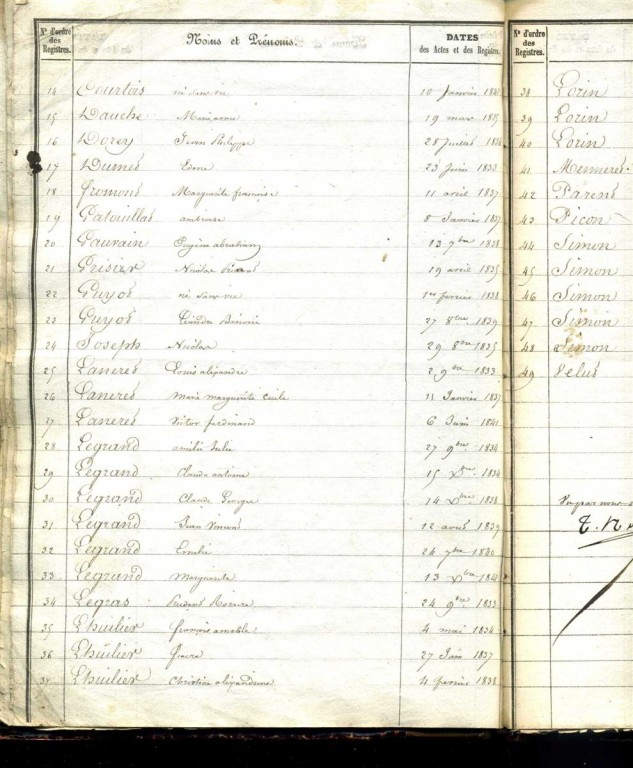 Nº d'ordre des Registres. Noms et Prénoms. DATES des Actes et des Registres.
14 Courtois né sans vie 10 Janvier
15 Dauche 19 mars
16 Dorey Jean Philippe 28
17 23 Juin 1833
18 Marguerite françoise 11 avril 1837
19 ambroise 8 Janvier 1837
20 Eugène abraham 13 7bre 1838
21 Nicolas 19 avril 1835
22 Guyot né sans vie 1er fevrier 1838
23 Guyot 27 8bre 1839
24 Joseph Nicolas 29 8bre 1835
25 Laneret Louis alexandre 2 9bre 1833
26 Laneret marie marguerite Cecile 11 Janvier 1837
27 Laneret Victor ferdinand 6 Juin 1841
28 Legrand amélie Julie 27 9bre 1834
29 Legrand Claude antoine 15 Xbre 1834
30 Legrand Claude Georges 14 Xbre 1838
31 Legrand Jean 12 août 1839
32 Legrand Emelie 24 7bre 1840
33 Legrand Marguerite 13 Xbre
34 Legras 24 9bre 1833
35 Lhuilier françois amable 4 mai 1834
36 Lhuilier 27 Juin 1837
37 Lhuilier Christine alexandrine 4 fevrier 1838
Nº d'ordre des Registres.
38 Lorin
39 Lorin
40 Lorin
41
42 Parent
43 Picon
44 Simon
45 Simon
46 Simon
47 Simon
48 Simon
49 Velut
Vu par nous